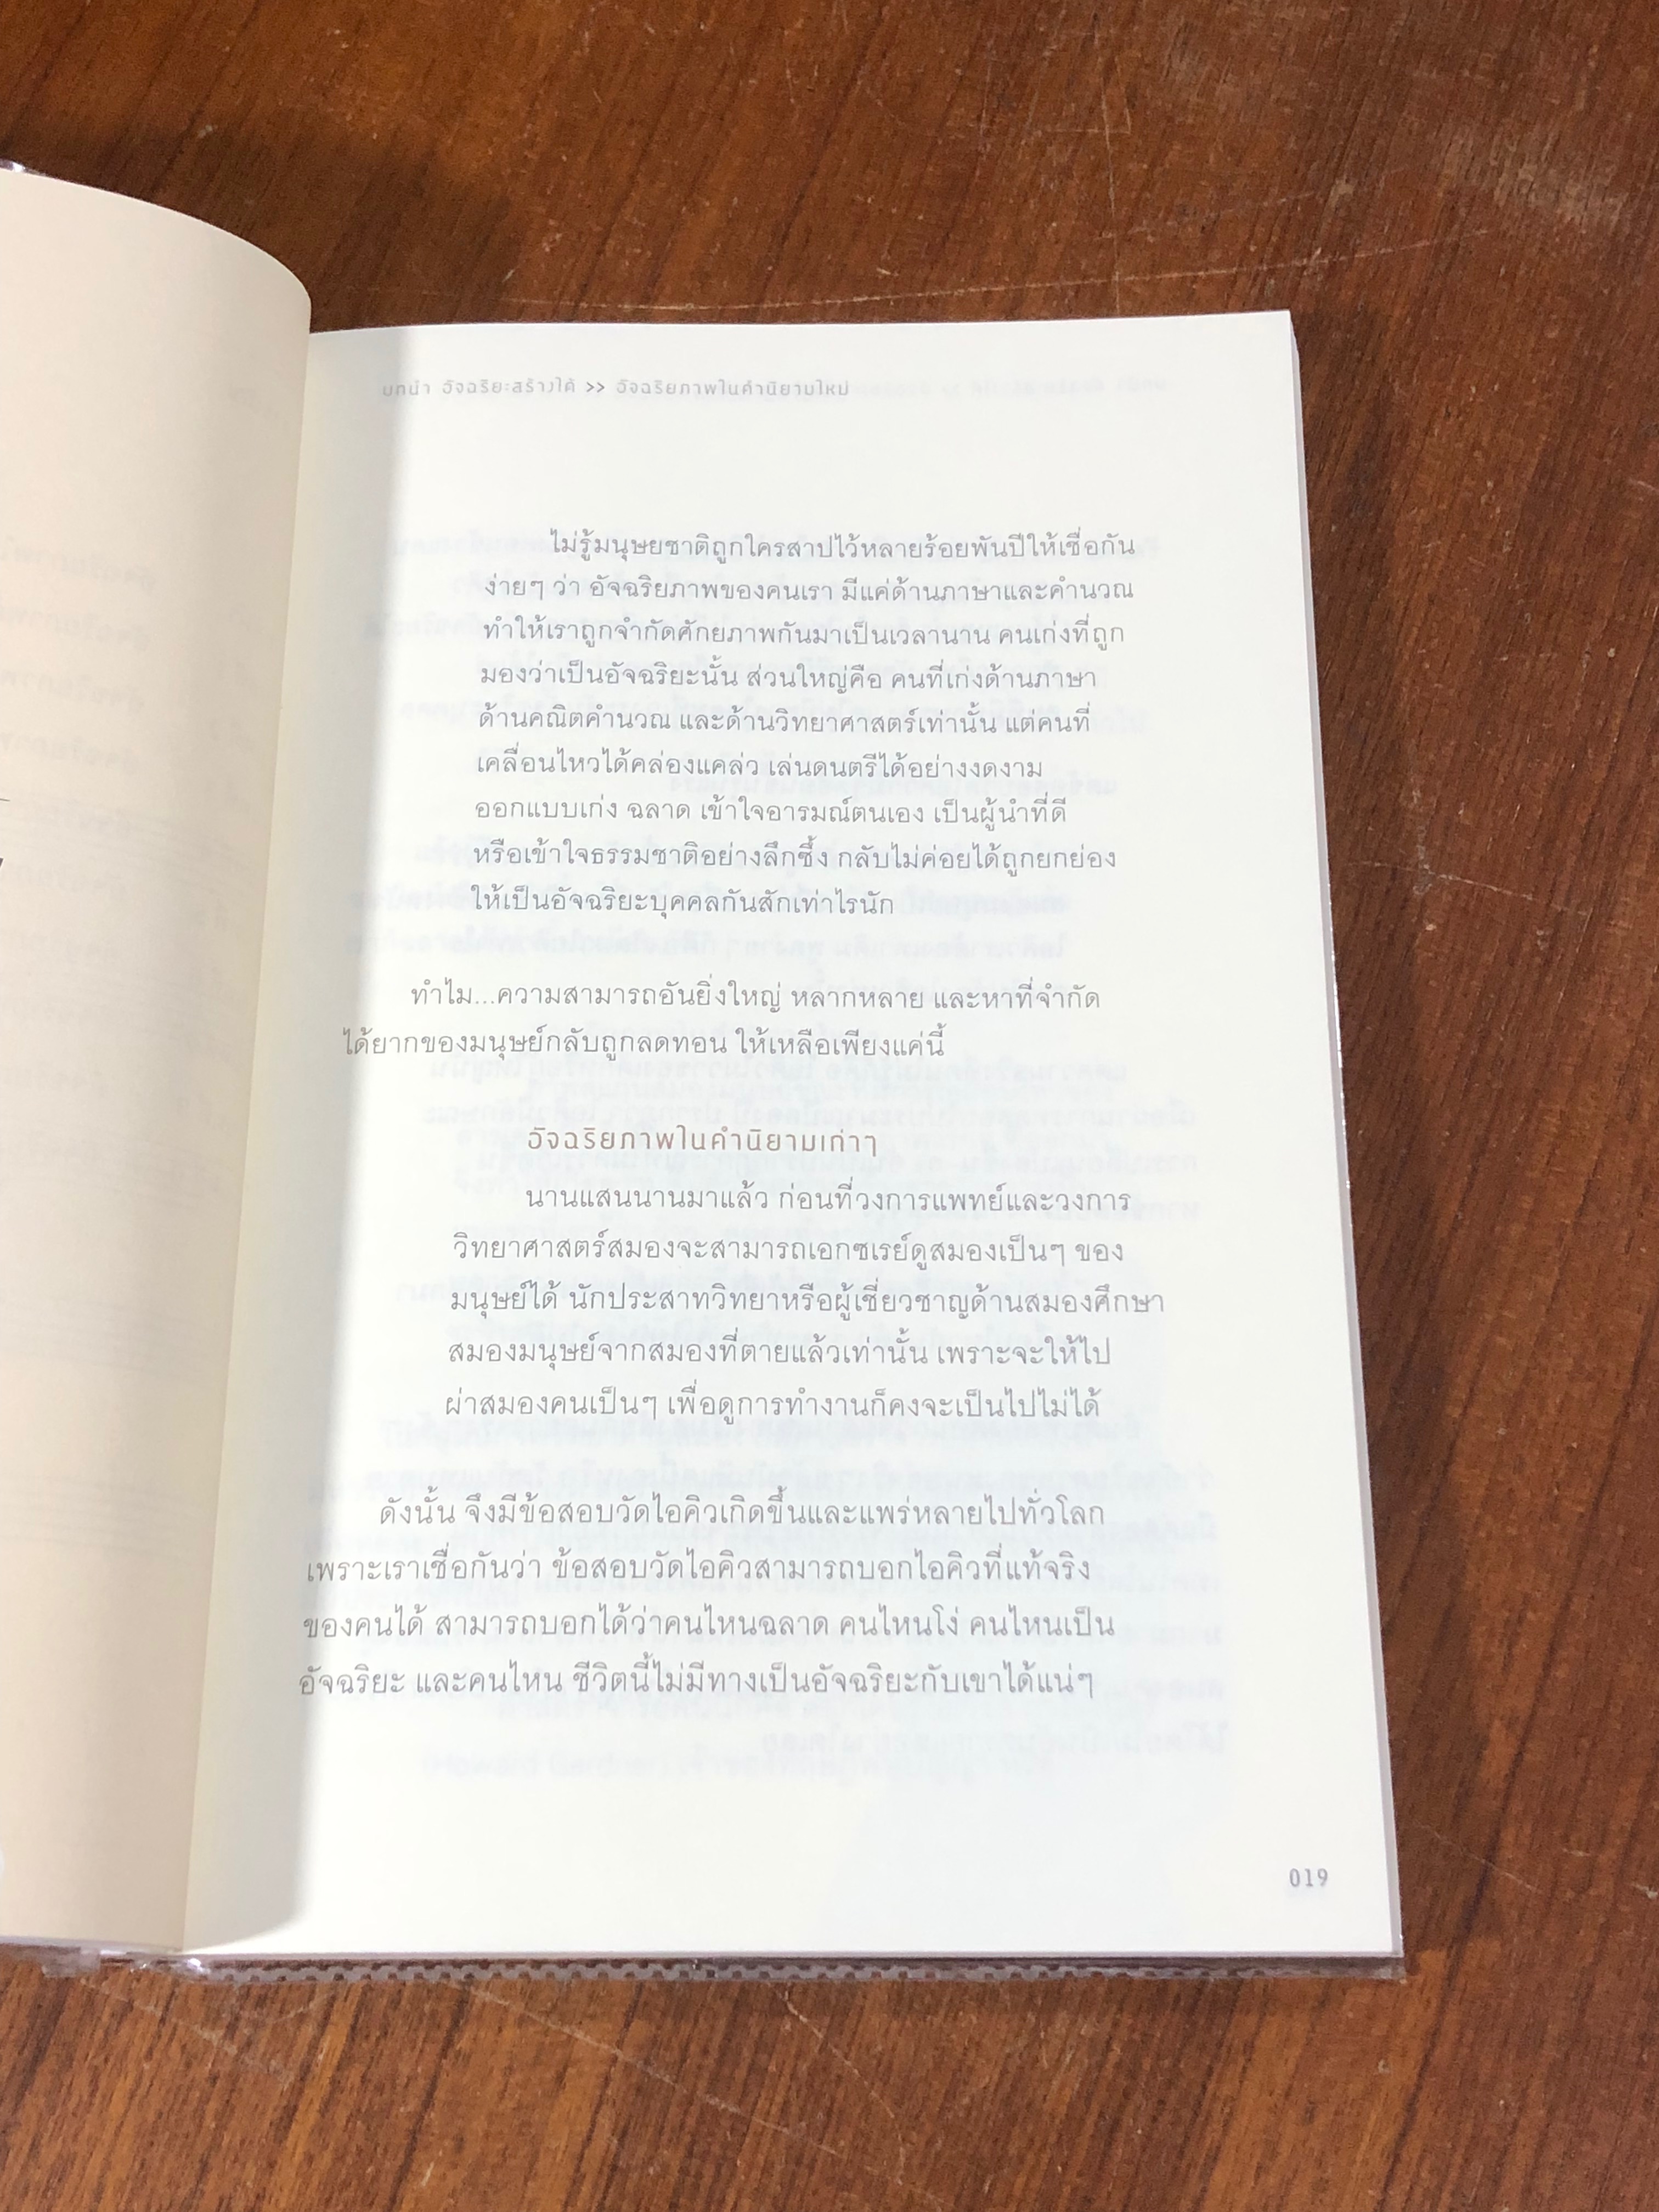 บทนำ อัจฉริยะสร้างได้ >> อัจฉริยภาพในคำนิยามใหม่
ไม่รู้มนุษยชาติถูกใครสาปไว้หลายร้อยพันปีให้เชื่อกัน
ง่ายๆ ว่า อัจฉริยภาพของคนเรา มีแค่ด้านภาษาและคำนวณ
ทำให้เราถูกจำกัดศักยภาพกันมาเป็นเวลานาน คนเก่งที่ถูก
มองว่าเป็นอัจฉริยะนั้น ส่วนใหญ่คือ คนที่เก่งด้านภาษา
ด้านคณิตคำนวณ และด้านวิทยาศาสตร์เท่านั้น แต่คนที่
เคลื่อนไหวได้คล่องแคล่ว เล่นดนตรีได้อย่างงดงาม
ออกแบบเก่ง ฉลาด เข้าใจอารมณ์ตนเอง เป็นผู้นำที่ดี
หรือเข้าใจธรรมชาติอย่างลึกซึ้ง กลับไม่ค่อยได้ถูกยกย่อง
ให้เป็นอัจฉริยะบุคคลกันสักเท่าไรนัก
ทำไม...ความสามารถอันยิ่งใหญ่ หลากหลาย และหาที่จำกัด
ได้ยากของมนุษย์กลับถูกลดทอน ให้เหลือเพียงแค่นี้
อัจฉริยภาพในคำนิยามเก่าๆ
นานแสนนานมาแล้ว ก่อนที่วงการแพทย์และวงการ
วิทยาศาสตร์สมองจะสามารถเอกซเรย์ดูสมองเป็นๆ ของ
มนุษย์ได้ นักประสาทวิทยาหรือผู้เชี่ยวชาญด้านสมองศึกษา
สมองมนุษย์จากสมองที่ตายแล้วเท่านั้น เพราะจะให้ไป
ผ่าสมองคนเป็นๆ เพื่อดูการทำงานก็คงจะเป็นไปไม่ได้
ดังนั้น จึงมีข้อสอบวัดไอคิวเกิดขึ้นและแพร่หลายไปทั่วโลก
เพราะเราเชื่อกันว่า ข้อสอบวัดไอคิวสามารถบอกไอคิวที่แท้จริง
ของคนได้ สามารถบอกได้ว่าคนไหนฉลาด คนไหนโง่ คนไหนเป็น
อัจฉริยะ และคนไหน ชีวิตนี้ไม่มีทางเป็นอัจฉริยะกับเขาได้แน่ๆ
019